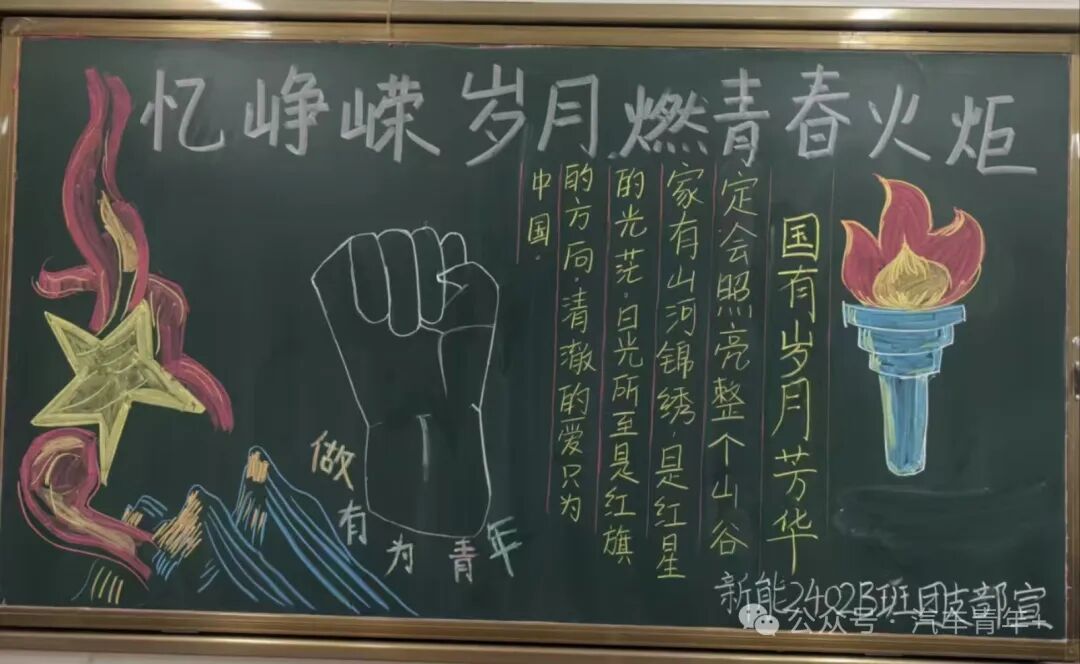 忆峥嵘岁月 燃青春火炬
国有岁月芳华
定会照亮整个山谷
家有山河锦绣,是红星
的光茫。日光所至是红旗
的方向。清澈的爱只为
中国。
做有为青年
新能2402B班团支部宣
公众号·汽车青年+